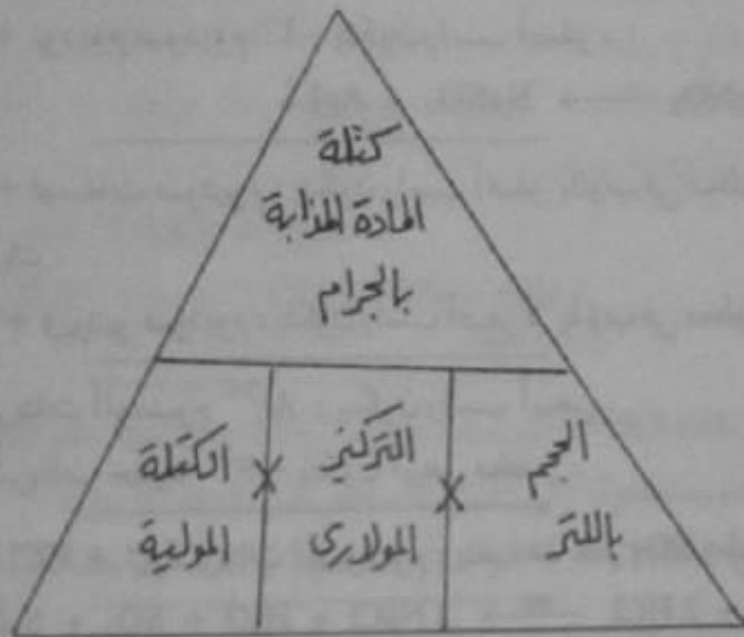 كتلة
المادة المذابة
بالجرام
الحجم
باللتر
×
التركيز
المولارى
×
الكتلة
المولية